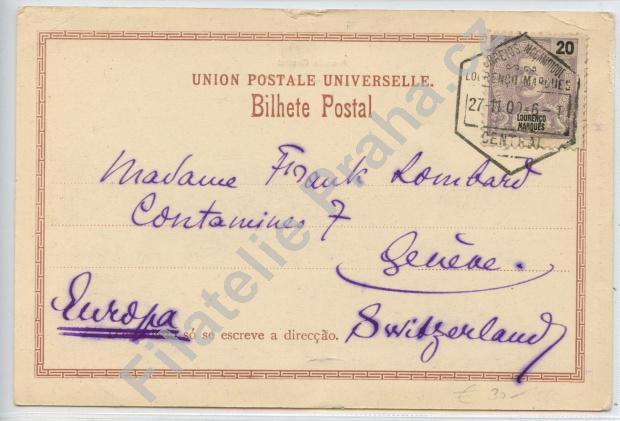 20
CORREIOS MOÇAMBIQUE
LOURENÇO MARQUES
27-11 00-6-T
CENTRAL
LOURENÇO
MARQUÊS
UNION POSTALE UNIVERSELLE.
Bilhete Postal
Madame Frank Lombard
Contamines 7
Genève.
Europa
só se escreve a direcção.
Switzerland
€ 30-
Filatelie Praha.cz